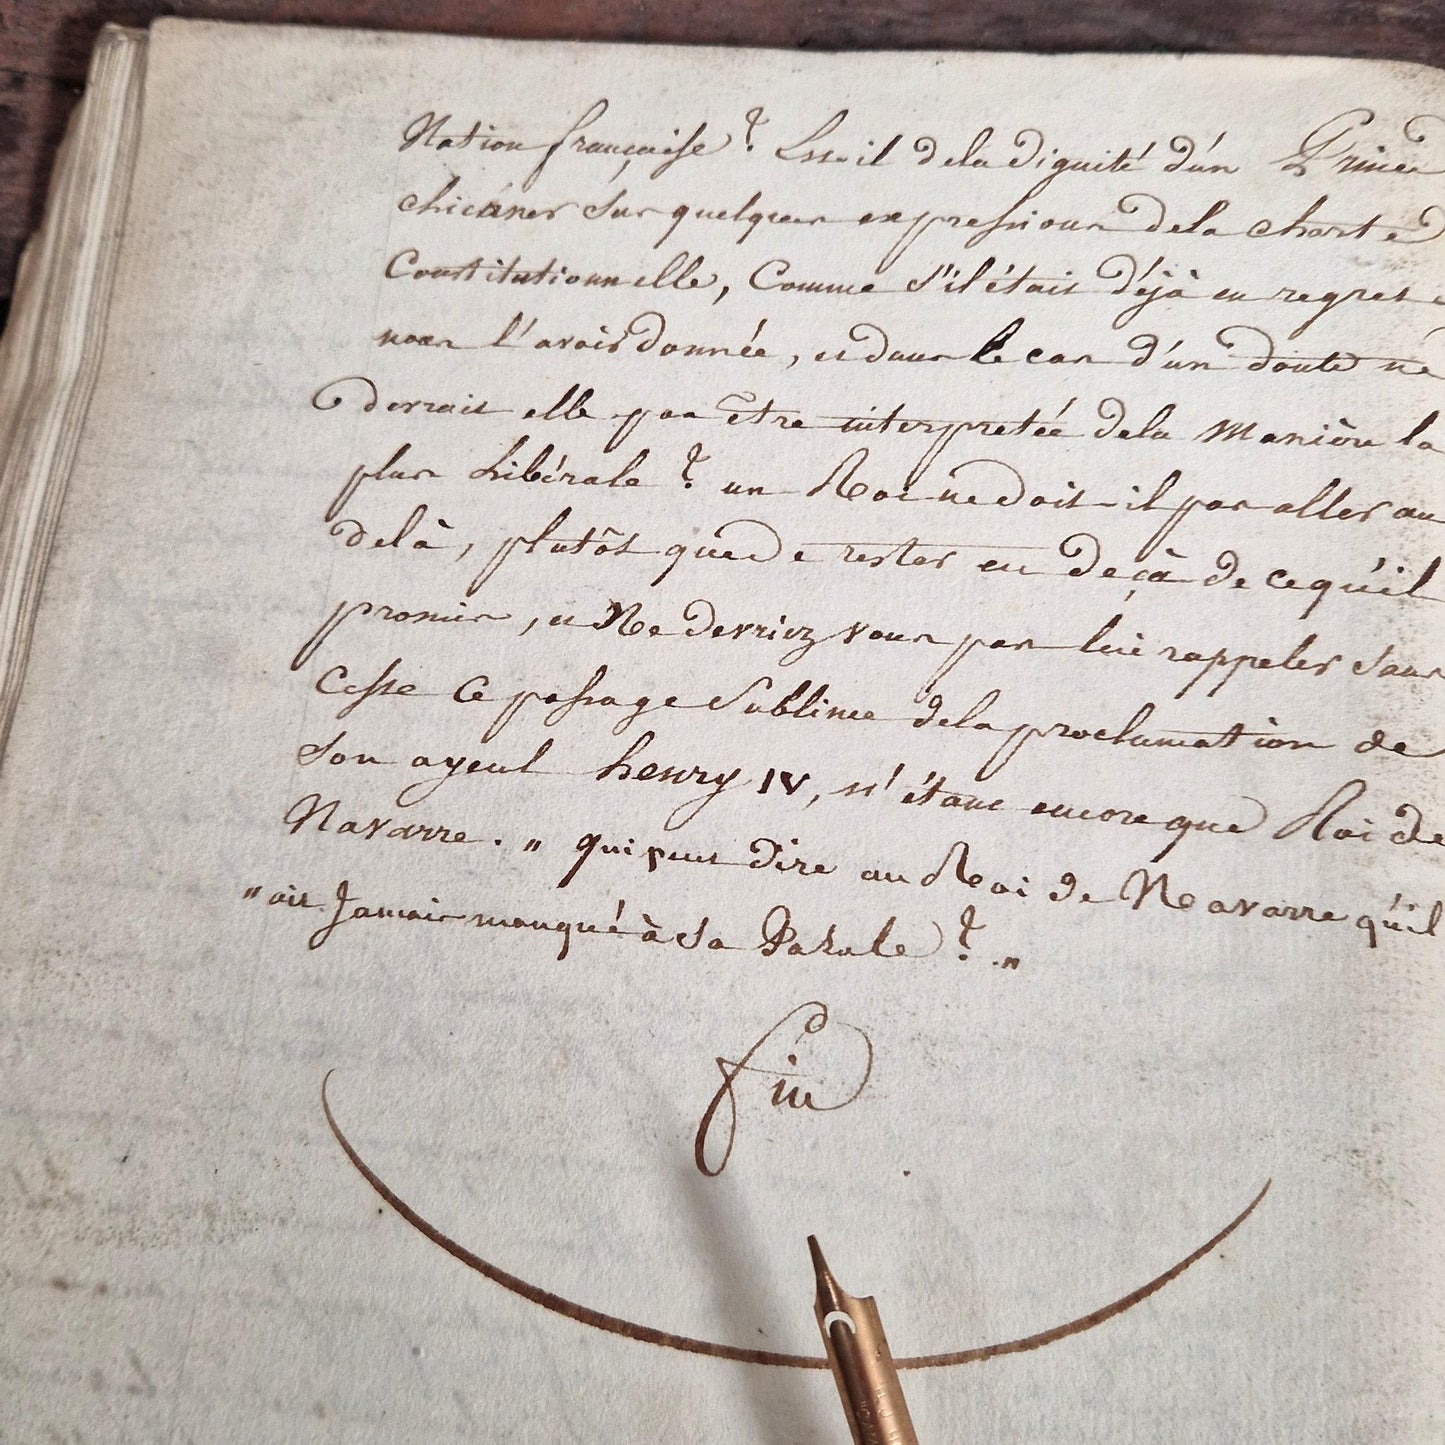 Nation française ? Est-il de la dignité d'un Prince
chicaner sur quelques expressions de la charte
Constitutionnelle, Comme s'il était déjà en regret
nous l'avoir donnée, et dans le cas d'un doute ne
devrait elle pas être interpretée de la Manière la
plus libérale ? un Roi ne doit-il pas aller au
delà, plutôt que de rester en deçà de ce qu'il
promis, et Ne devriez vous pas lui rappeler sans
Cesse Ce passage Sublime de la proclamation de
son ayeul henry IV, n'étant encore que Roi de
Navarre. „ qui peut dire au Roi de Navarre qu'il
„ ait Jamais manqué à sa Parole ? . „
fin